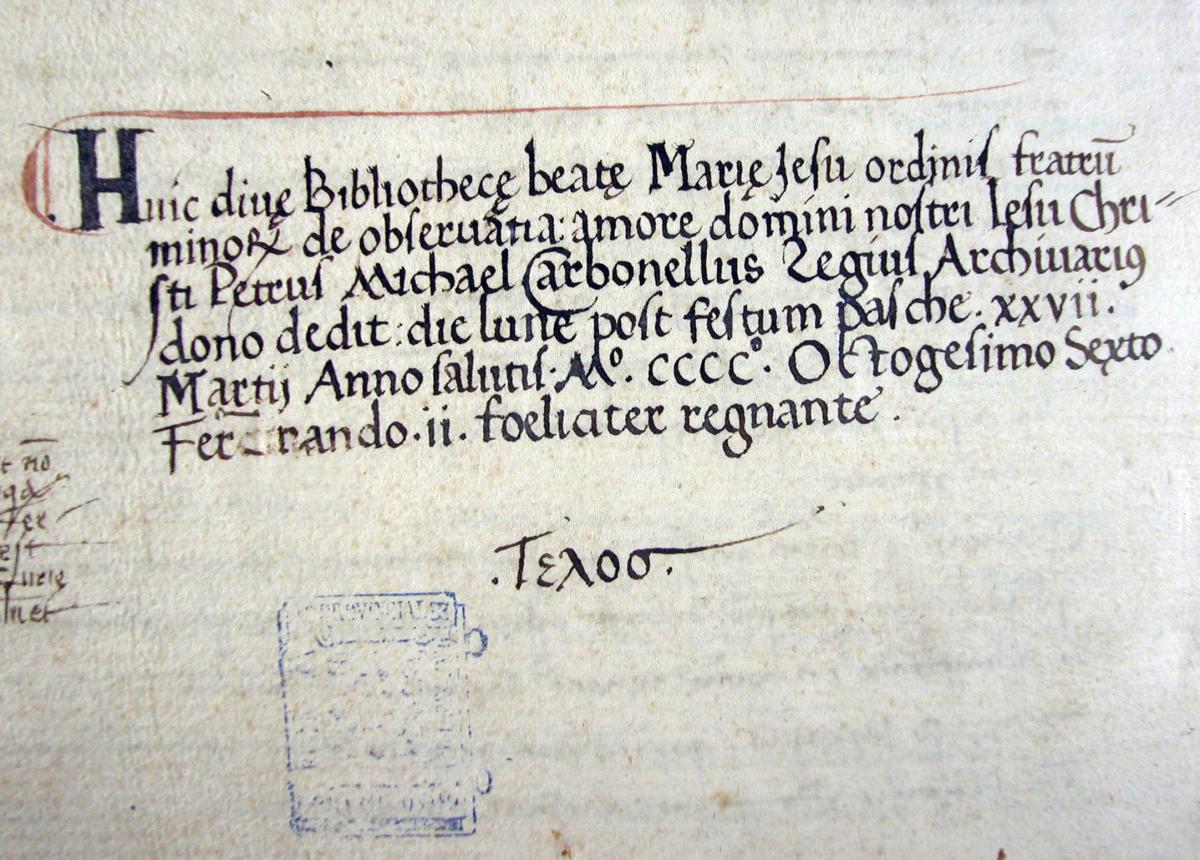 Huic diuę Bibliothecę beatę Marię Jesu ordinis fratrū
minoꝝ de obseruātia: amore domini nostri Iesu Chri-
sti Petrus Michael Carbonellus Regius Archiuariꝰ
dono dedit: die lunę post festum pasche. xxvii.
Martij Anno salutis. Mº. CCCCº. Octogesimo Sexto.
Ferdinando .ii. foeliciter regnante.
t nō
.Τελοσ.
PROVINCIAL